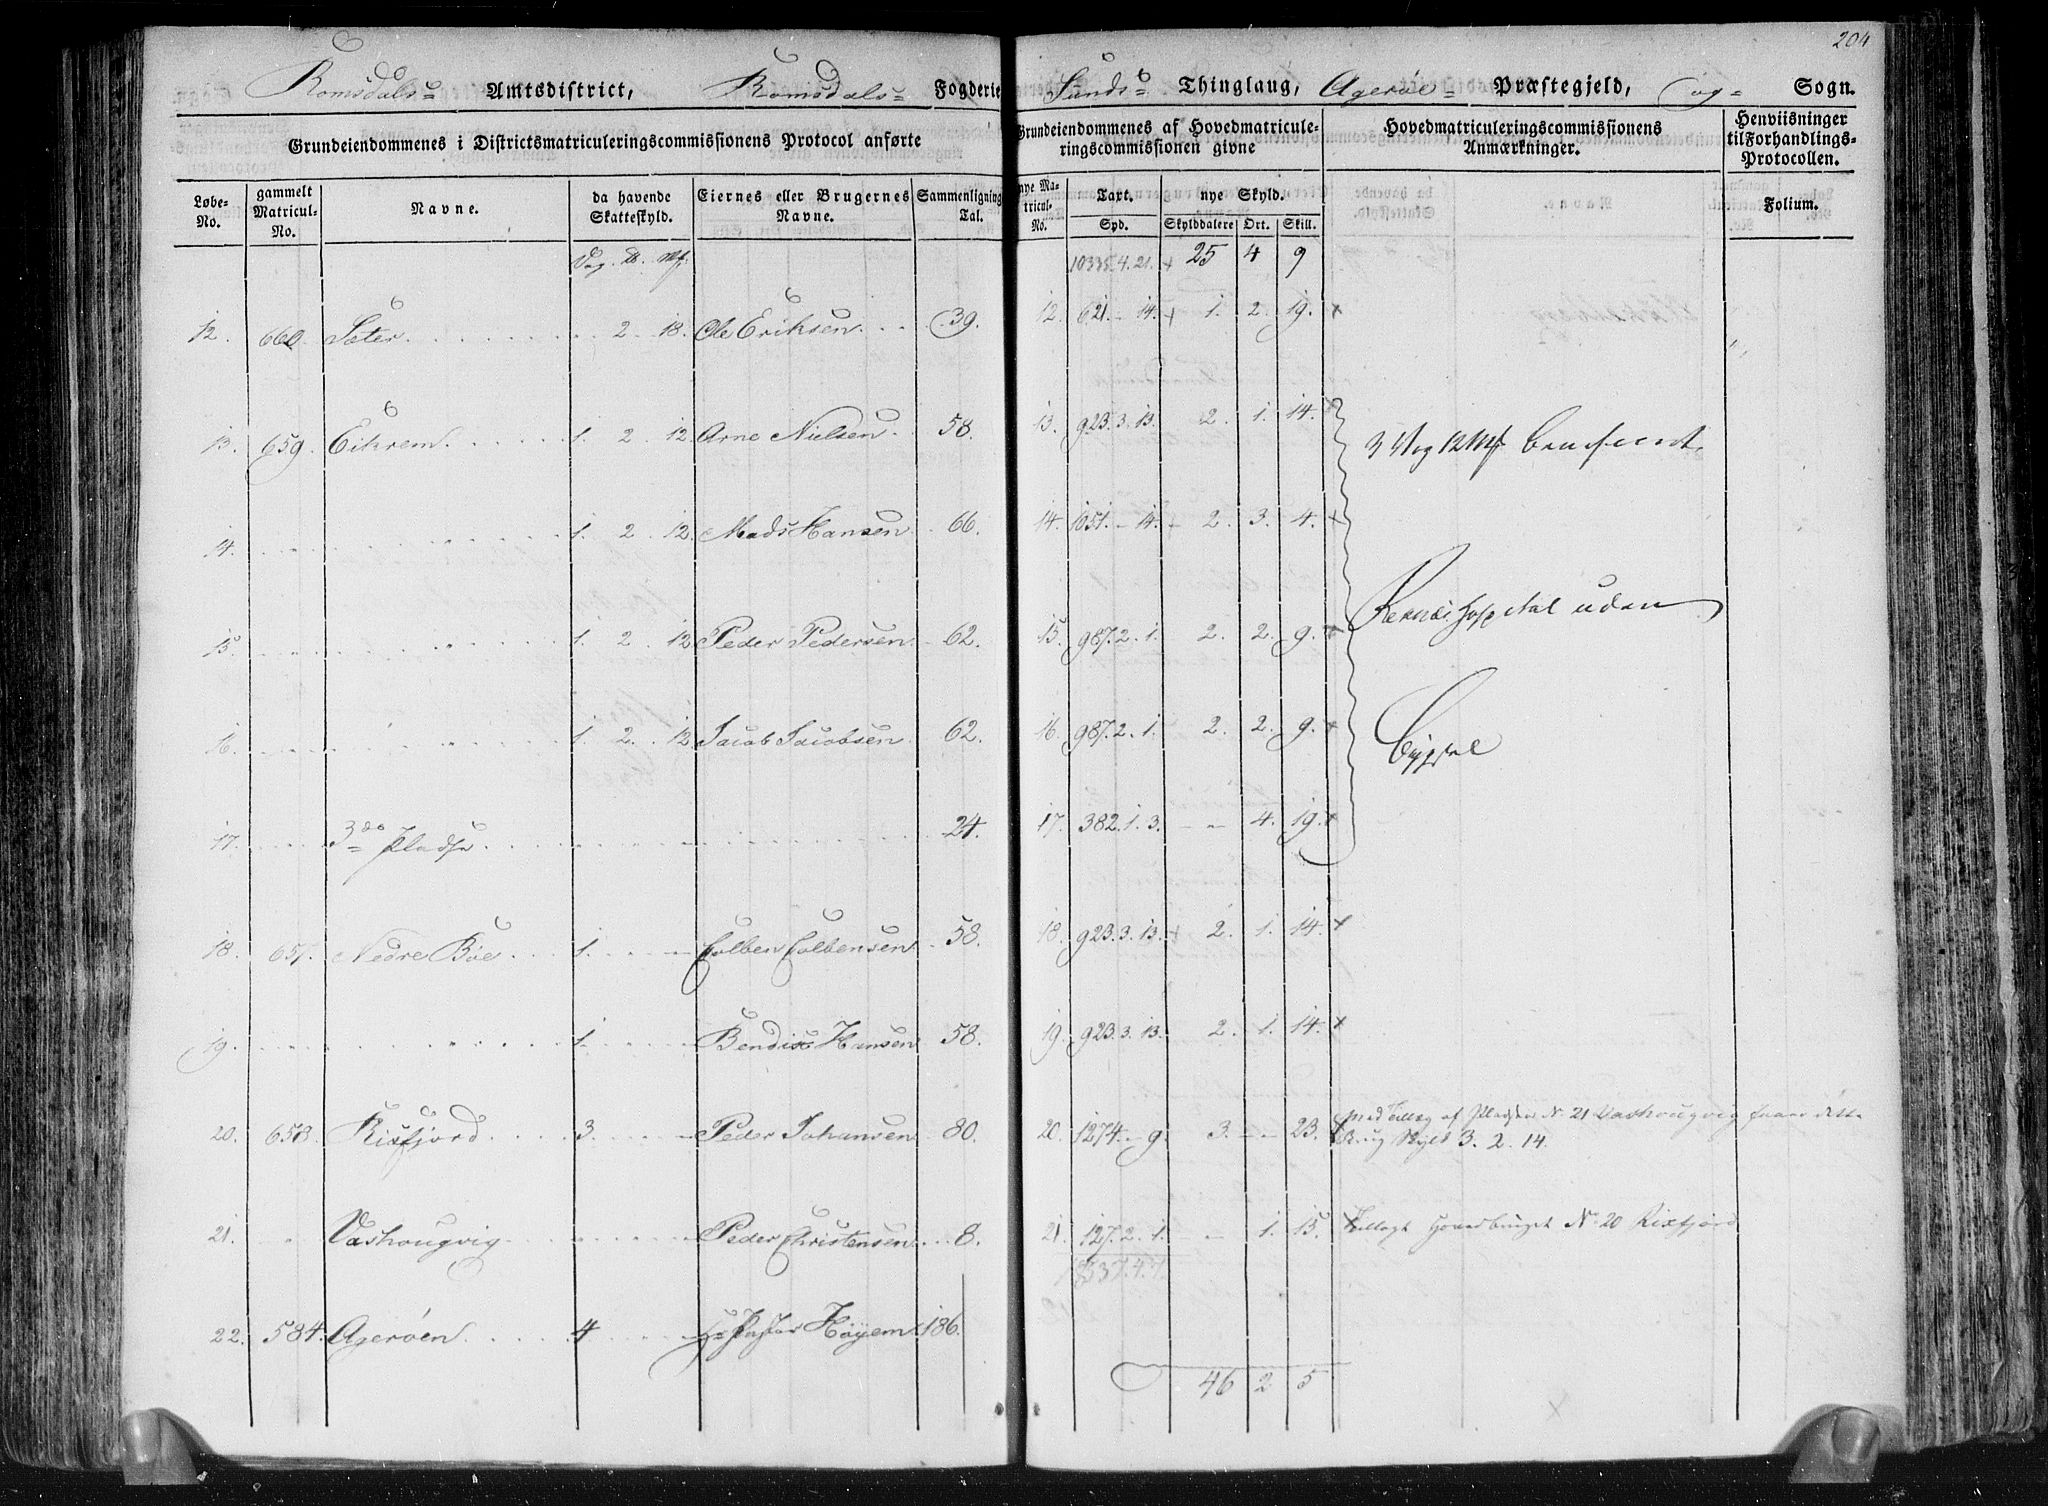 204
Romsdals Amtsdistrict, Romsdals Fogderie Sunds Thinglaug, Agerøe Præstegjeld, og Sogn.
Grundeiendommenes i Districtsmatriculeringscommissionens Protocol anførte
Grundeiendommenes af Hovedmatricule-
ringscommissionen givne
Hovedmatriculeringscommissionens
Anmærkninger.
Henviisninger
til Forhandlings-
Protocollen.
Løbe-
No.
gammelt
Matricul-
No.
Navne.
da havende
Skatteskyld.
Eiernes eller Brugernes
Navne.
Sammenligning
Tal.
nye Ma-
tricul-
No.
Taxt.
Spd.
nye Skyld.
Skylddalere Ort. Skill.
Folium.
10335.4.21. + 25 4 9
12. 660. Sæter 2. 18. Ole Eriksen 39. 12. 621. - 14. + 1. 2. 19. +
13. 659. Eikrem 1. 2. 12. Arne Nielsen 58. 13. 923.3.13. 2. 1. 14. +
3 Vog 12 Mk
14. 1. 2. 12. Mads Hansen 66. 14. 1051. - 14. + 2. 3. 4. +
15. 1. 2. 12 Peder Pedersen 62. 15. 987.2.1. 2. 2. 9. +
Hospital uden
16. 1. 2. 12 Jacob Jacobsen 62. 16. 987.2.1. 2. 2. 9. +
Bygsel
17. 3de Pladse 24. 17. 382.1.3. - - 4. 19. +
18. 657. Nedre Bøe 1. - - Colben Colbensen 58. 18. 923.3.13. + 2. 1. 14. +
19. 1. Bendix Hansen 58. 19. 923.3.13. 2. 1. 14. +
20. 658. Risfjord 3. - Peder Johansen 80. 20. 1274. - 9. 3. - - 23.
med Tillæg af Pladsen No 21 Vashougvig faaer dette
Brug Skyld 3. 2. 14.
21. " Vashougvig Peder Christensen 8. 21. 127.2.1. - 1. 15.
Tillagt Hovedbruget No 20 Risfjord
22. 584. Agerøen 4 Hr Pastor Høyem 186.
46 2 5